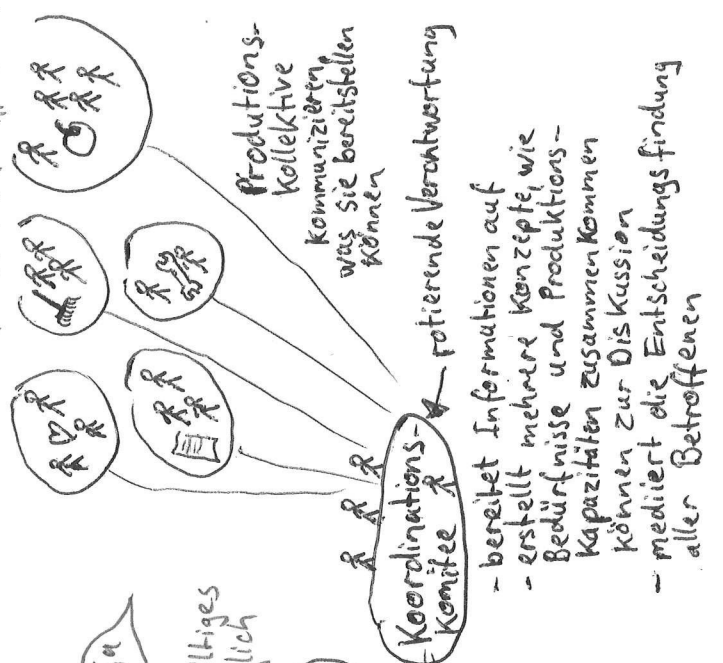 Produtions-
kollektive
kommunizieren,
was sie bereitstellen
können
rotierende Verantwortung
Koordinations-
komitee
- bereitet Informationen auf
- erstellt mehrere Konzepte, wie
Bedürfnisse und Produktions-
kapazitäten zusammenkommen
können zur Diskussion
- mediiert die Entscheidungsfindung
aller Betroffenen
ltiges
lich